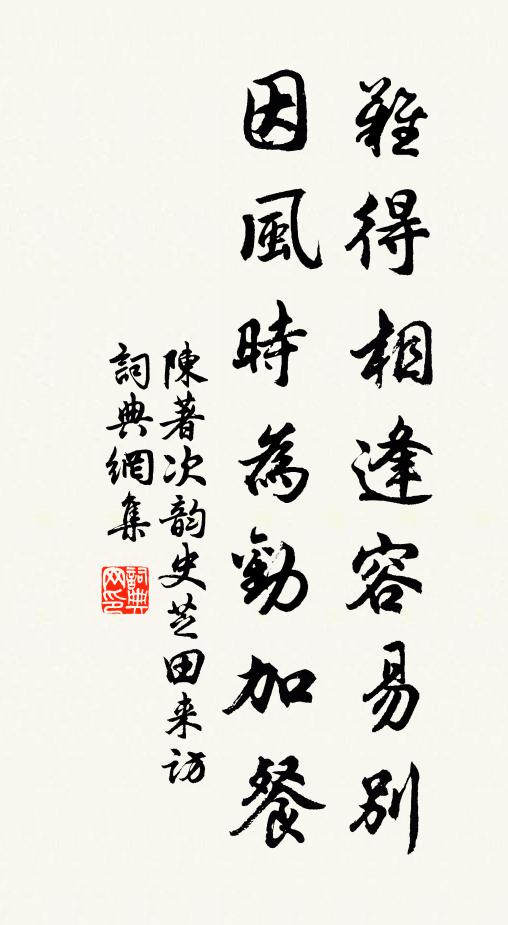 難得相逢容易別
因風時為勸加餐
陳著次韵史芝田来訪
詞典網集
詞典網印